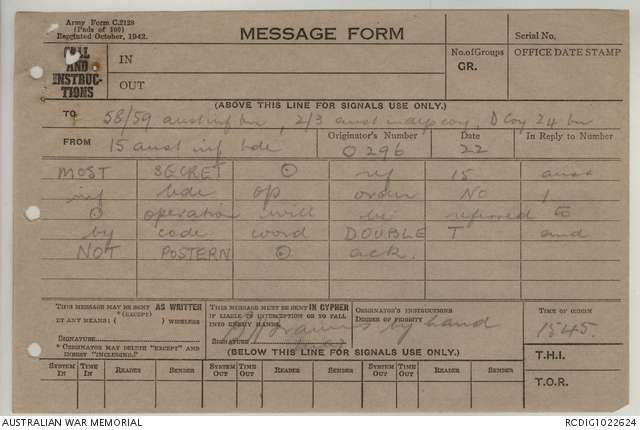 Army Form C.2128
(Pads of 100)
Reprinted October, 1942.
MESSAGE FORM
Serial No.
CALL AND INSTRUC-TIONS
IN
OUT
No. of Groups
GR.
OFFICE DATE STAMP
(ABOVE THIS LINE FOR SIGNALS USE ONLY.)
TO 58/59 aust inf bn, 2/3 aust indep coy, D Coy 24 bn
FROM 15 aust inf bde
Originator's Number O 296
Date 22
In Reply to Number
MOST SECRET ⊙ ref 15 aust
inf bde op order NO 1
⊙ operation will be referred to
by code word DOUBLE T and
NOT POSTERN ⊙ ack.
THIS MESSAGE MAY BE SENT AS WRITTEN
*(EXCEPT)
BY ANY MEANS: ( ) WIRELESS
SIGNATURE
*ORIGINATOR MAY DELETE "EXCEPT" AND INSERT "INCLUDING."
THIS MESSAGE MUST BE SENT IN CYPHER
IF LIABLE TO INTERCEPTION OR TO FALL
INTO ENEMY HANDS.
SIGNATURE
ORIGINATOR'S INSTRUCTIONS
DEGREE OF PRIORITY
by hand
TIME OF ORIGIN
1545.
T.H.I.
T.O.R.
(BELOW THIS LINE FOR SIGNALS USE ONLY.)
SYSTEM IN TIME IN READER SENDER SYSTEM OUT TIME OUT READER SENDER SYSTEM OUT TIME OUT READER SENDER
AUSTRALIAN WAR MEMORIAL
RCDIG1022624